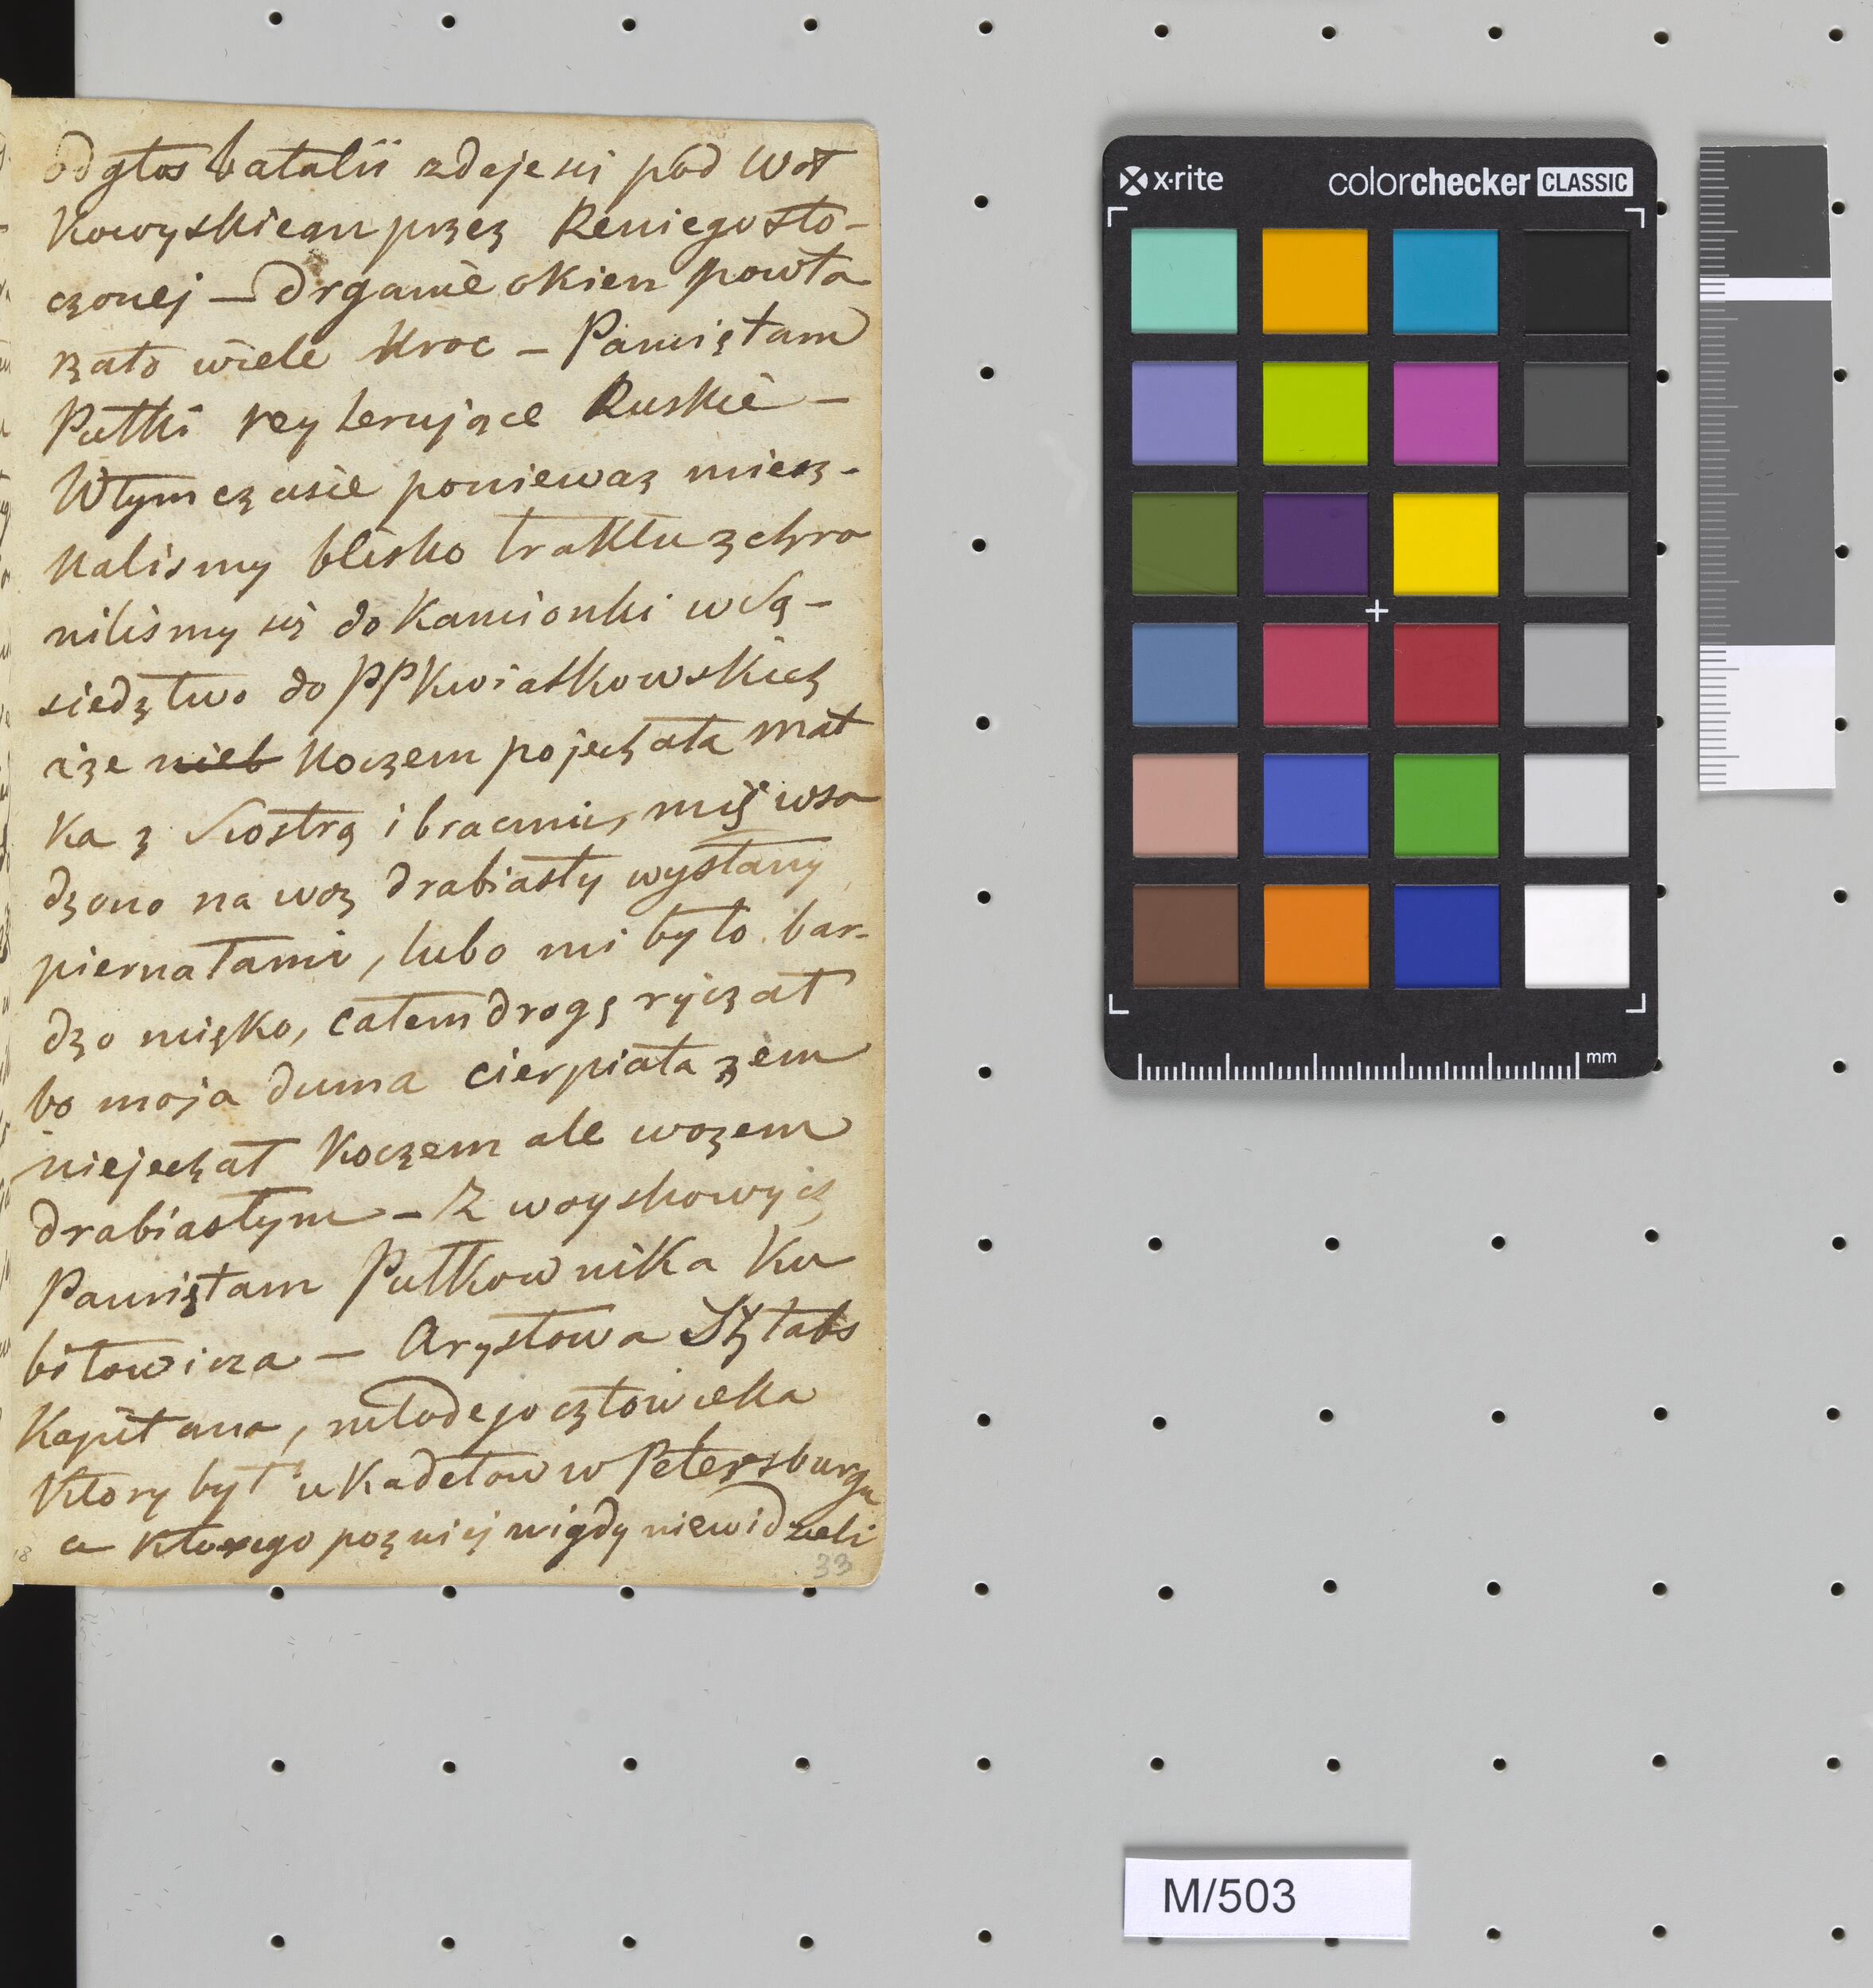 odgłos batalii zdaje sie pod Woł
kowyskiem przez Reniego sto-
czonej – Drganie okien powta
rzało wiele kroc – Pamiętam
Pułki reyterujące Ruskie –
W tym czasie poniewaz miesz-
kalismy blisko traktu schro
nilismy się do Kamionki w Są-
siedztwo do PP Kwiatkowskich
ize nieb Koczem pojechała mat
ka z Siostrą i bracmi, mię wsa
dzono na woz drabiasty wysłany
piernatami, lubo mi było bar-
dzo miękko, całem drogę ryczał
bo moja duma cierpiała zem
niejechał Koczem ale wozem
drabiastym – Z woyskowych
Pamiętam Pułkownika Ku
biłowicza – Arystowa Sztabs
Kapitana, młodego człowieka
Ktory był u Kadetow w Petersburgu
a Ktorego pozniej nigdy niewidzieli
33
x·rite
colorchecker CLASSIC
mm
M/503